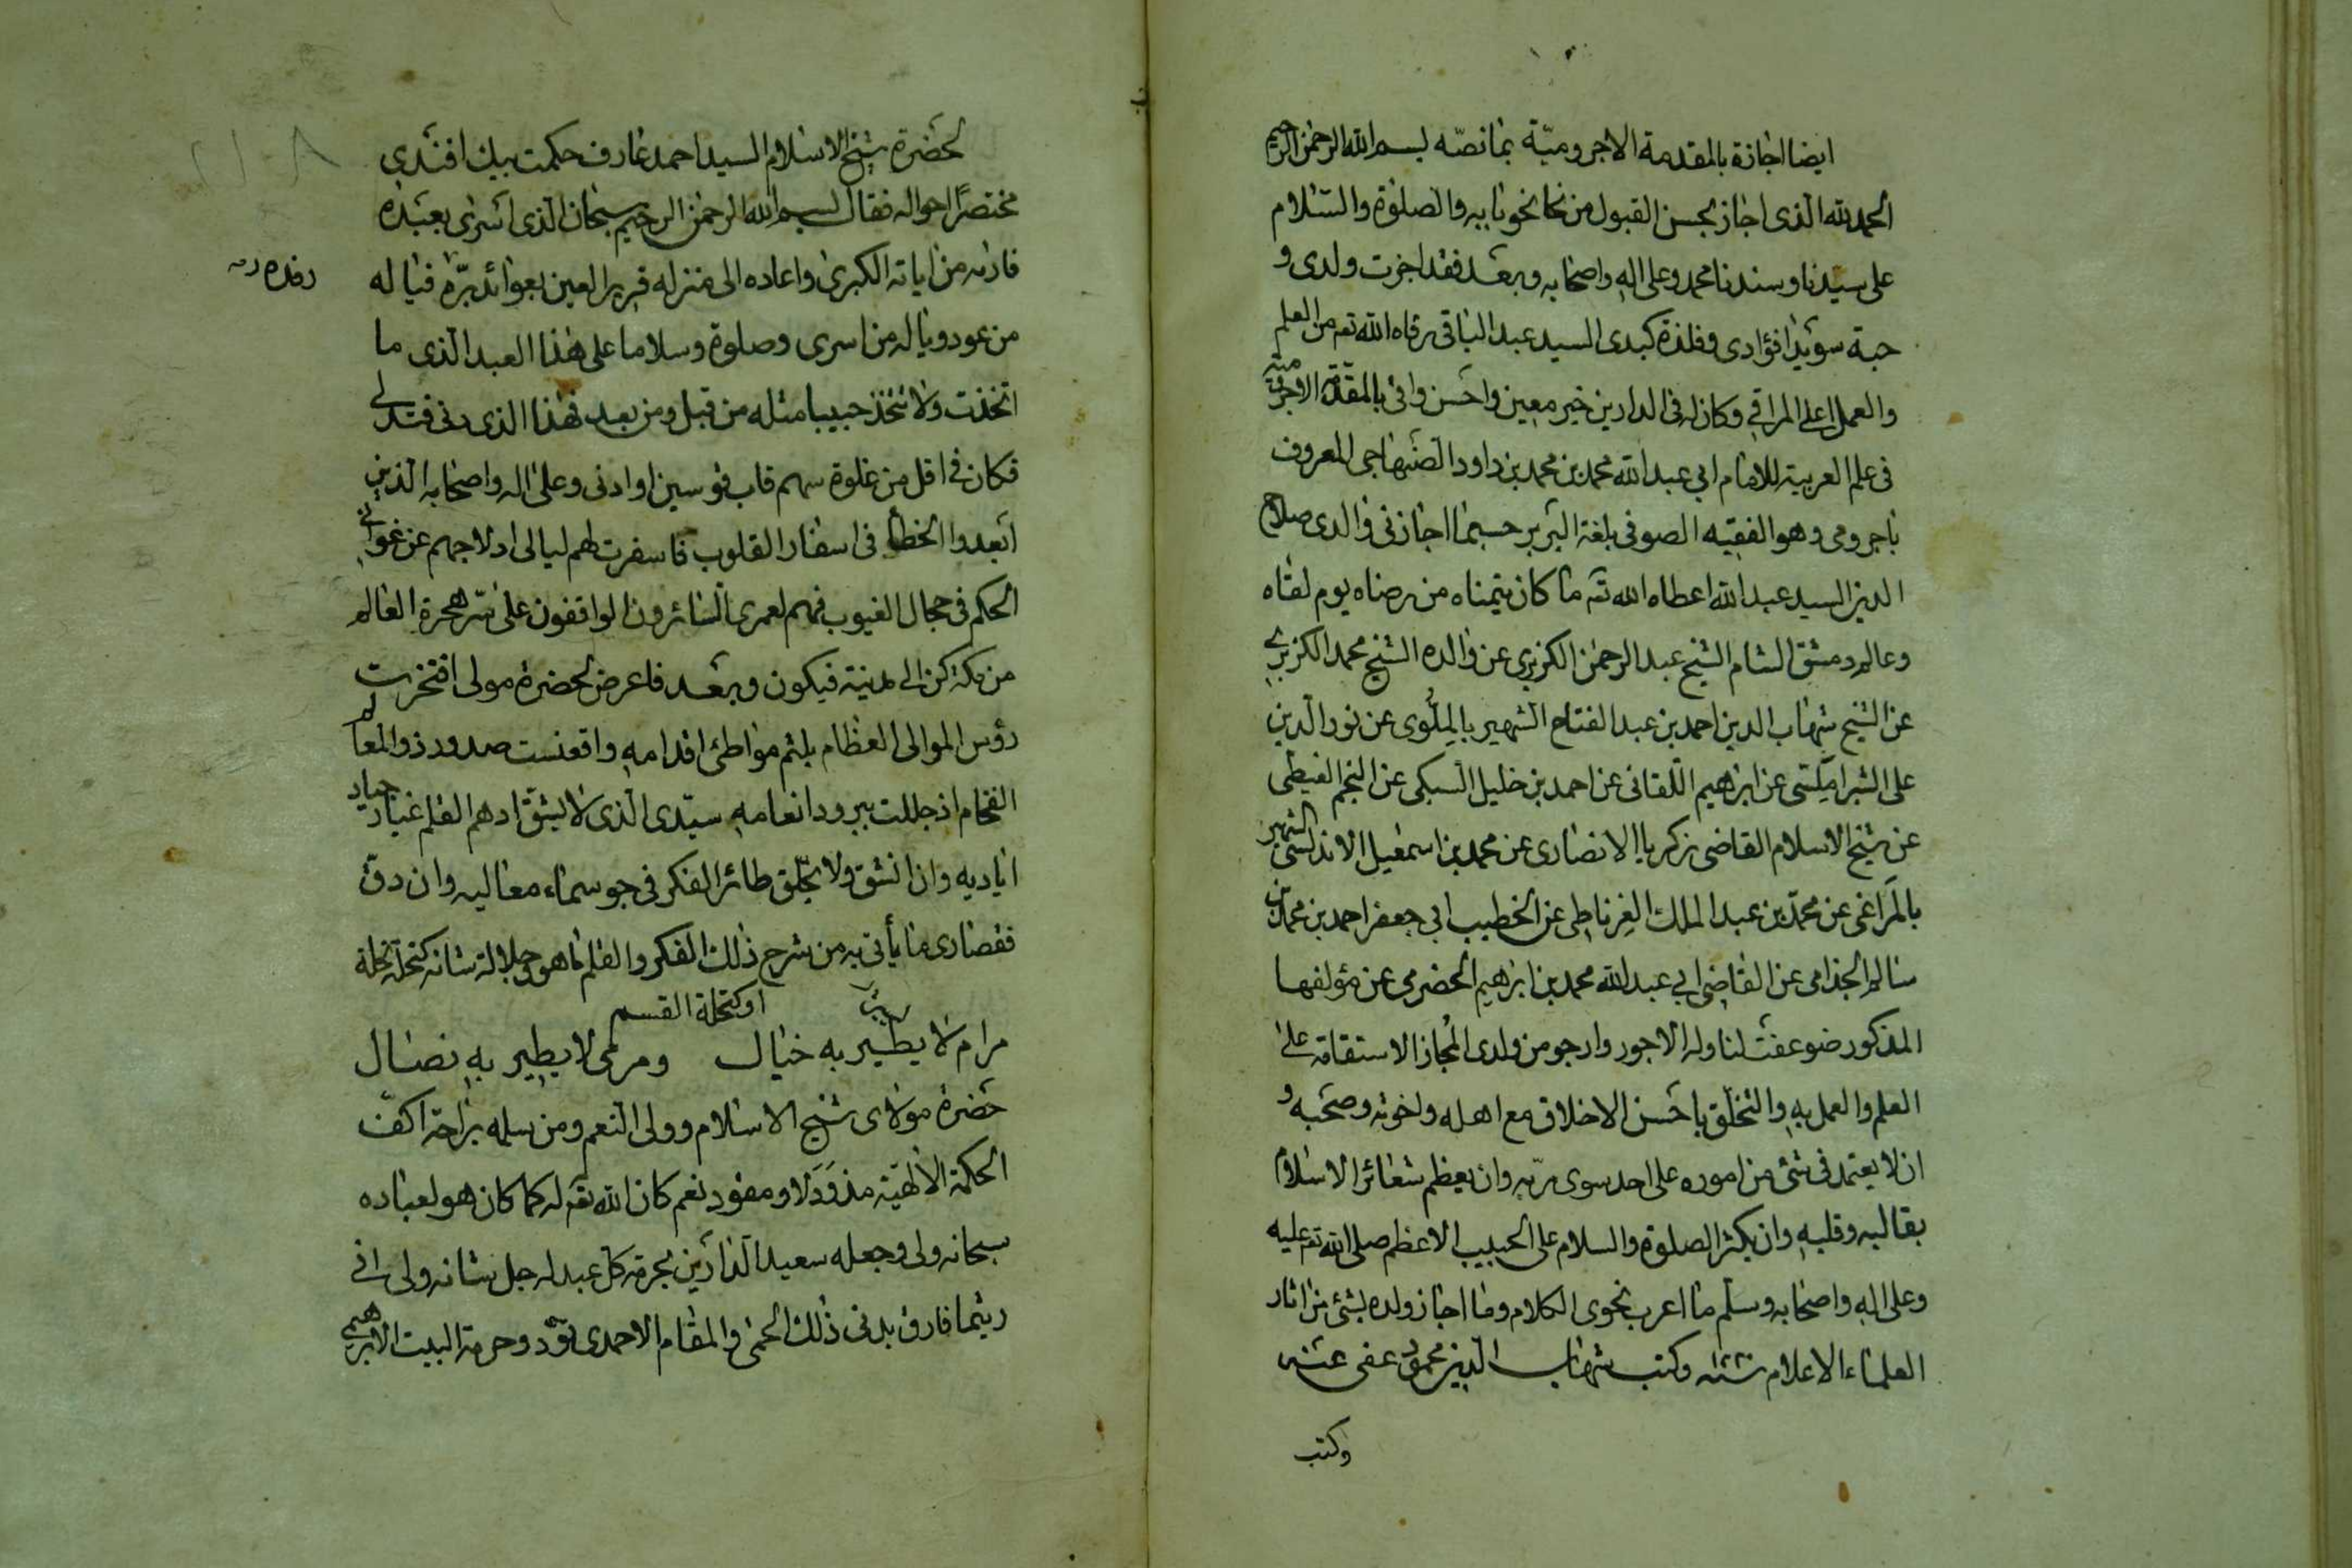 ايضا اجازة بالمقدمة الاجروميّة بما نصّه بسم الله الرحمن الرحيم
الحمد لله الّذى اجاز بحسن القبول من نحا نحو بابه والصلوة والسّلام
على سيّدنا وسندنا محمد وعلى اله واصحابه وبعد فقد اجزت ولدى و
حبة سويدا فؤادى وفلذة كبدى السيد عبد الباقى رقاه الله تع من العلم
والعمل اعلى المراقي وكان له فى الدارين خير معين واحسن واقى بالمقدّمة الاجروميّة
فى علم العربية للامام ابي عبد الله محمد بن محمد بن داود الصّنهاجى المعروف
باجرومى وهو الفقيه الصوفى بلغة البربر حسبما اجازنى والدى صلاح
الدين السيد عبد الله اعطاه الله تع ما كان يتمناه من رضاه يوم لقاه
وعالم دمشق الشام الشيخ عبد الرحمن الكزبرى عن والده الشيخ محمد الكزبرى
عن الشيخ شهاب الدين احمد بن عبد الفتاح الشهير بالملّوى عن نور الدين
على الشبراملسى عن ابرهيم اللّقانى عن احمد بن خليل السبكى عن النجم الغيطى
عن شيخ الاسلام القاضى زكريا الانصارى عن محمد بن اسمعيل الاندلسى الشهير
بالمراغى عن محمّد بن عبد الملك الغرناطى عن الخطيب ابى جعفر احمد بن محمد بن
سالم الجذامى عن القاضى ابي عبد الله محمد بن ابرهيم الحضرمى عن مؤلفها
المذكور ضوعفت لنا وله الاجور وارجو من ولدى المجاز الاستقامة على
العلم والعمل به والتخلّق باحسن الاخلاق مع اهله واخوته وصحبه و
ان لا يعتمد فى شئ من اموره على احد سوى ربّه وان يعظم شعائر الاسلام
بقالبه وقلبه وان يكثر الصلوة والسلام على الحبيب الاعظم صلى الله تع عليه
وعلى اله واصحابه وسلّم ما اعرب نحوى الكلام وما اجاز ولده بشئ من اثار
العلماء الاعلام وكتب شهاب الدين محمود عفى عنه
وكتب
لحضرة شيخ الاسلام السيد احمد عارف حكمت بيك افندى
مختصرًا احواله فقال بسم الله الرحمن الرحيم سبحان الّذى اسرى بعبده
فاراه من اياته الكبرى واعاده الى منزله قرير العين بعوائد برّه فيا له
من عود ويا له من اسرى وصلوة وسلاما على هذا العبد الّذى ما
اتخذت ولا تتخذ حبيبا مثله من قبل ومن بعد فهذا الذى دنى فتدلى
فكان فى اقل من غلوة سهم قاب قوسين او ادنى وعلى اله واصحابه الّذين
ابعدوا الخطا فى اسفار القلوب فاسفرت لهم ليالى ادلاجهم عن غوانى
الحكم فى حجال الغيوب فهم لعمرى السّائرون الواقفون على سرّ هجرة العالم
من مكة كن الى مدينة فيكون وبعد فاعرض لحضرة مولى افتخرت
رؤس الموالى العظام بلثم مواطئ اقدامه واقعنست صدور ذوالمعالم
الفخام اذ جللت ببرود انعامه سيّدى الّذى لا يشقّ ادهم القلم غبار جياد
اياديه وان انشق ولا يحلّق طائر الفكر فى جو سماء معاليه وان دقّ
فقصارى ما يأتى به من شرح ذلك الفكر والقلم ما هو وجلالة شانه كنحلة نخلة
او كتحلة القسم
مرام لا يطير به خيال ومرمى لا يطير به نصال
حضرة مولاى شيخ الاسلام وولى النعم ومن سلمه براحة اكفّ
الحكمة الالهيّة كان الله تع له كما كان هو لعباده
سبحانه ولى وجعله سعيد الدّارين بحرمة كلّ عبد له جل شانه ولى انى
ريثما فارق بدنى ذلك الحمى والمقام الاحمدى وحرمة البيت الابرهيمى